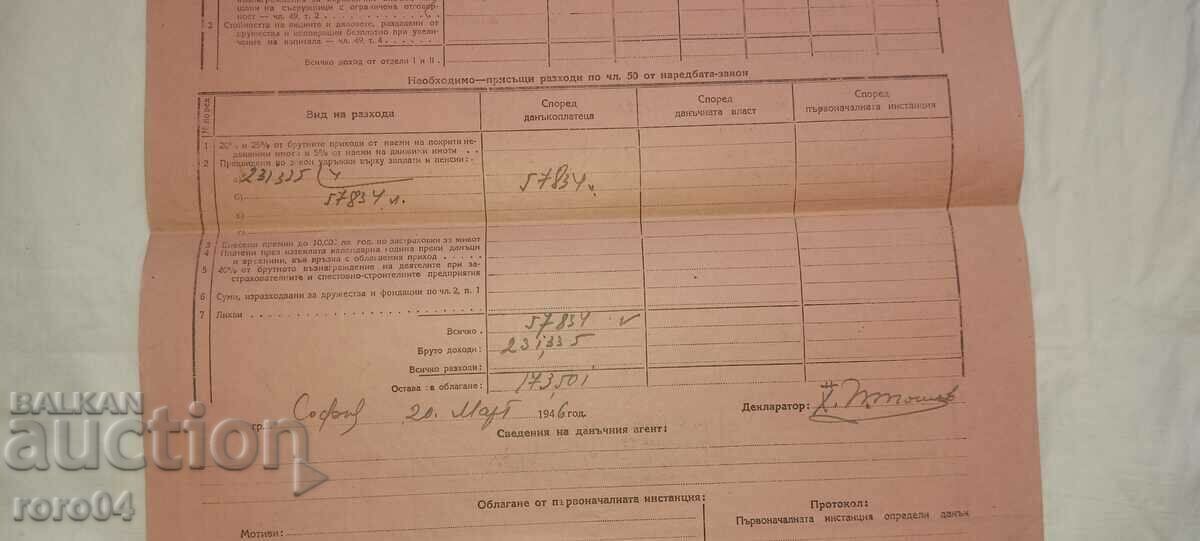 щани на съдружници с ограничена отговор-
ност — чл. 49, т. 2
2 Стойността на акциите и дяловете, раздадени от
дружества и кооперации безплатно при увели-
чение на капитала — чл. 49, т. 4
Всичко доход от отдели I и II.
Необходимо—присъщи разходи по чл. 50 от наредбата-закон
№ поред
Вид на разхода
Според данъкоплатеца
Според данъчната власт
Според първоначалната инстанция
1 20% и 25% от брутните приходи от наеми на покрити не-
движими имоти и 5% от наеми на движими имоти
2 Предвидени по закон удръжки върху заплати и пенсии:
231335 4
57834 л.
57834 л.
б)
в)
г)
3 Внесени премии до 10,000 лв. год. по застраховки за живот
4 Платени през изтеклата календарна година преки данъци
и връхнини, във връзка с облагаемия приход
5 40% от брутното възнаграждение на деятелите при за-
страхователните и спестовно-строителните предприятия
6 Суми, изразходвани за дружества и фондации по чл. 2, п. 1
7 Лихви
Всичко. 57834
Бруто доходи: 231,335
Всичко разходи:
Остава за облагане: 173,501
гр. София 20. Март 1946 год.
Декларатор:
Сведения на данъчния агент:
Облагане от първоначалната инстанция:
Протокол:
Мотиви:
Първоначалната инстанция определи данък
BALKAN
auction
roro04